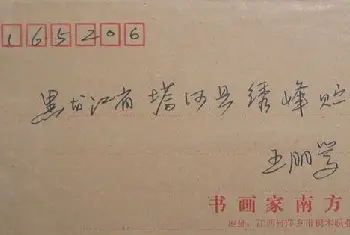 165206
黑龙江省塔河县绣峰贮
王朋学
书画家南方